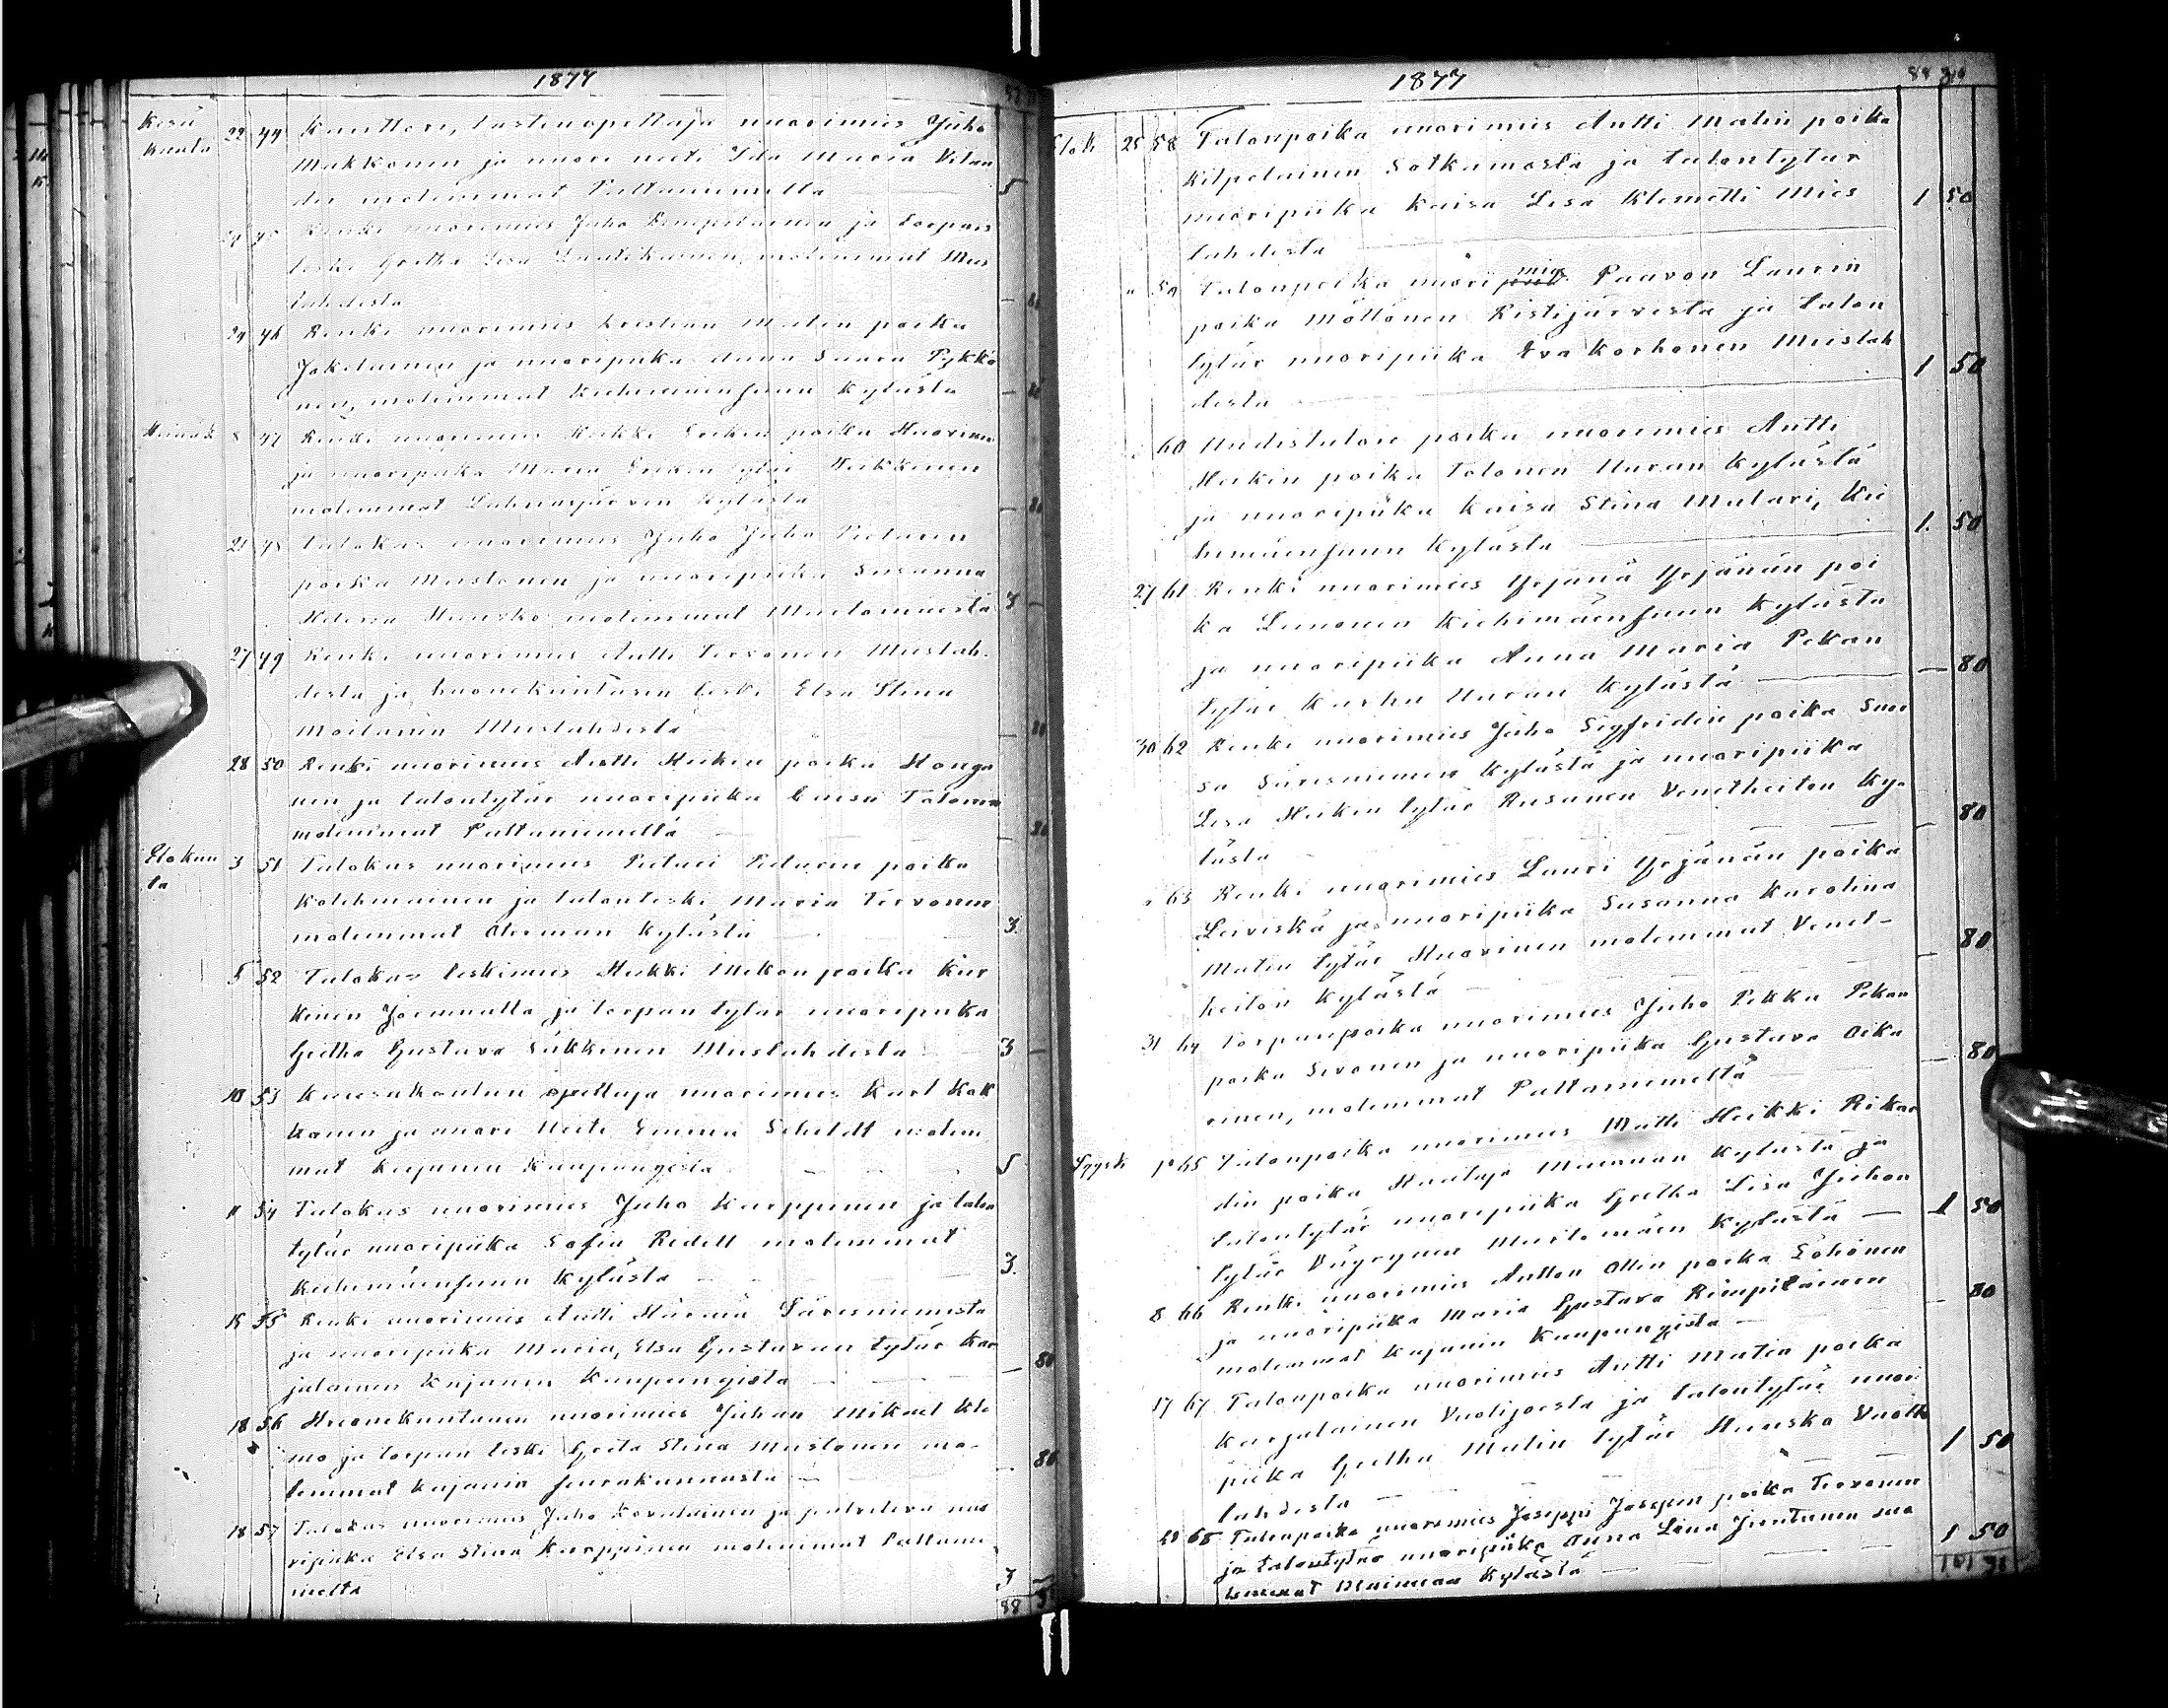 1877
Kesä
kuuta
22 44 Kanttori, lastenopettaja nuorimies Juho
Makkonen ja nuori neiti Ida Maria Vilan
der molemmat Paltaniemeltä 5
45 Renki nuorimies Juho Rimpiläinen ja torpan
leski Gretha Lisa molemmat Mies
lahdesta
29 46 Renki nuorimies Kristian Matin poika
Jokelainen ja nuoripiika Anna Saara Pykkö
nen, molemmat Kiehimäensuun kylästä
Heinäk 8 47 Renki nuorimies Heikki Erikin poika Huovinen
ja nuoripiika Maria Erikin tytär Heikkinen
molemmat Lahnasjärven kylästä
21 48 Talokas nuorimies Juho Juho Pieturin
poika Mustonen ja nuoripiika Susanna
Helena Hunsko molemmat Mieslomäestä 3 –
27 49 Renki nuorimies Antti Tervonen Mieslah-
desta ja huonekuntasen leski Elsa Stina
Moilanen Mieslahdesta
28 50 Renki nuorimies Antti Heikin poika Honga
nen ja talontytär nuoripiika Caisa Tolonen
molemmat Paltaniemeltä
Elokuu
ta
3 51 Talokas nuorimies Pieturi Pieturin poika
Kolehmainen ja talonleski Maria Tervonen
molemmat Oterman kylästä 3.
5 52 Talokas leskimies Heikki Mikon poika Kär
känen Jormualla ja torpan tytär nuoripiika
Gretha Gustava Säkkinen Mieslahdesta 3 –
10 53 Kansakoulun opettaja nuorimies Karl Kok
konen ja nuori Neiti Emma Schildt molem
mat Kajaanin Kaupungista 5
11 54 Talokas nuorimies Juho Karppinen ja talon
tytär nuoripiika Sofia Redell molemmat
Kiehimäensuun kylästä 3.
15 55 Renki nuorimies Antti Härmä Säresniemestä
ja nuoripiika Maria, Elsa Gustavan tytär Kar
jalainen Kajanin Kaupungista – 80
18 56 Huonekuntanen nuorimies Juhan Mikael Kle
mo ja torpan leski Greta Stina Mustonen mo-
lemmat Kajanin seurakunnasta – 80
18 57 Talokas nuorimies Juho Kovalainen ja palveleva nuo
ripiika Elsa Stina Karppinen molemmat Paltanie
meltä 3 –
88
1877
Elok 25 58 Talonpoika nuorimies Antti Matin poika
Kilpeläinen Sotkamosta ja talontytär
nuoripiika Kaisa Lisa Klemetti Mies
lahdesta 1 50
" 59 Talonpoika nuori mies Paavon Laurin
poika Möttönen Ristijärvestä ja talon
tytär nuoripiika Eva Korhonen Mieslah
desta 1 50
60 Uudistalon poika nuorimies Antti
Heikin poika Tolonen Uuran kylästä
ja nuoripiika Kaisa Stina Mulari, Kie
himäensuun kylästä 1. 50
27 61 Renki nuorimies Yrjänä Yrjänän poi
ka Leinonen Kiehimäensuun kylästä
ja nuoripiika Anna Maria Pekan
tytär Karhu Uuran kylästä – 80
30 62 Renki nuorimies Juho Sigfridin poika Suor
sa Säresniemen kylästä ja nuoripiika
Lisa Heikin tytär Rusanen Venetheiton ky-
lästä – 80
" 63 Renki nuorimies Lauri Yrjänän poika
Leiviskä ja nuoripiika Susanna Karolina
Matin tytär Huovinen molemmat Venet-
heiton kylästä – 80
31 64 Torpanpoika nuorimies Juho Pekka Pekan
poika Sivonen ja nuoripiika Gustava Oika
oinen, molemmat Paltaniemeltä – 80
Syysk 1 65 Talonpoika nuorimies Matti Heikki Rikar
din poika Hautaja Mieronan kylästä ja
talontytär nuoripiika Gretha Lisa Juhon
tytär Väyrynen Mieslomäen kylästä 1 50
8 66 Renki nuorimies Anttoon Ollin poika Löhönen
ja nuoripiika Maria Gustava Rimpiläinen
molemmat Kajanin Kaupungista – 80
17 67 Talonpoika nuorimies Antti Matin poika
Karjalainen Vuolijoesta ja talontytär nuori
piika Gretha Matin tytär Hunsko Vuotto
lahdesta 1 50
68 Talonpoika nuorimies Joseppi Josepin poika Tervonen
ja talontytär nuoripiika Anna Liina Juntunen mo
lemmat Mainuan kylästä 1 50
101